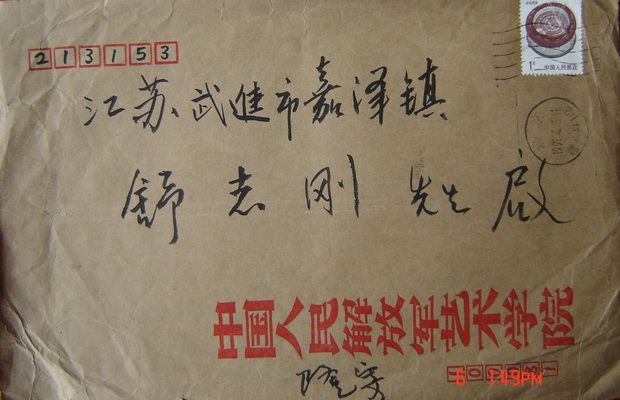 213153
江苏武进市嘉泽镇
舒志刚 先生 启
中国人民解放军艺术学院
中国人民邮政
6 1:49PM